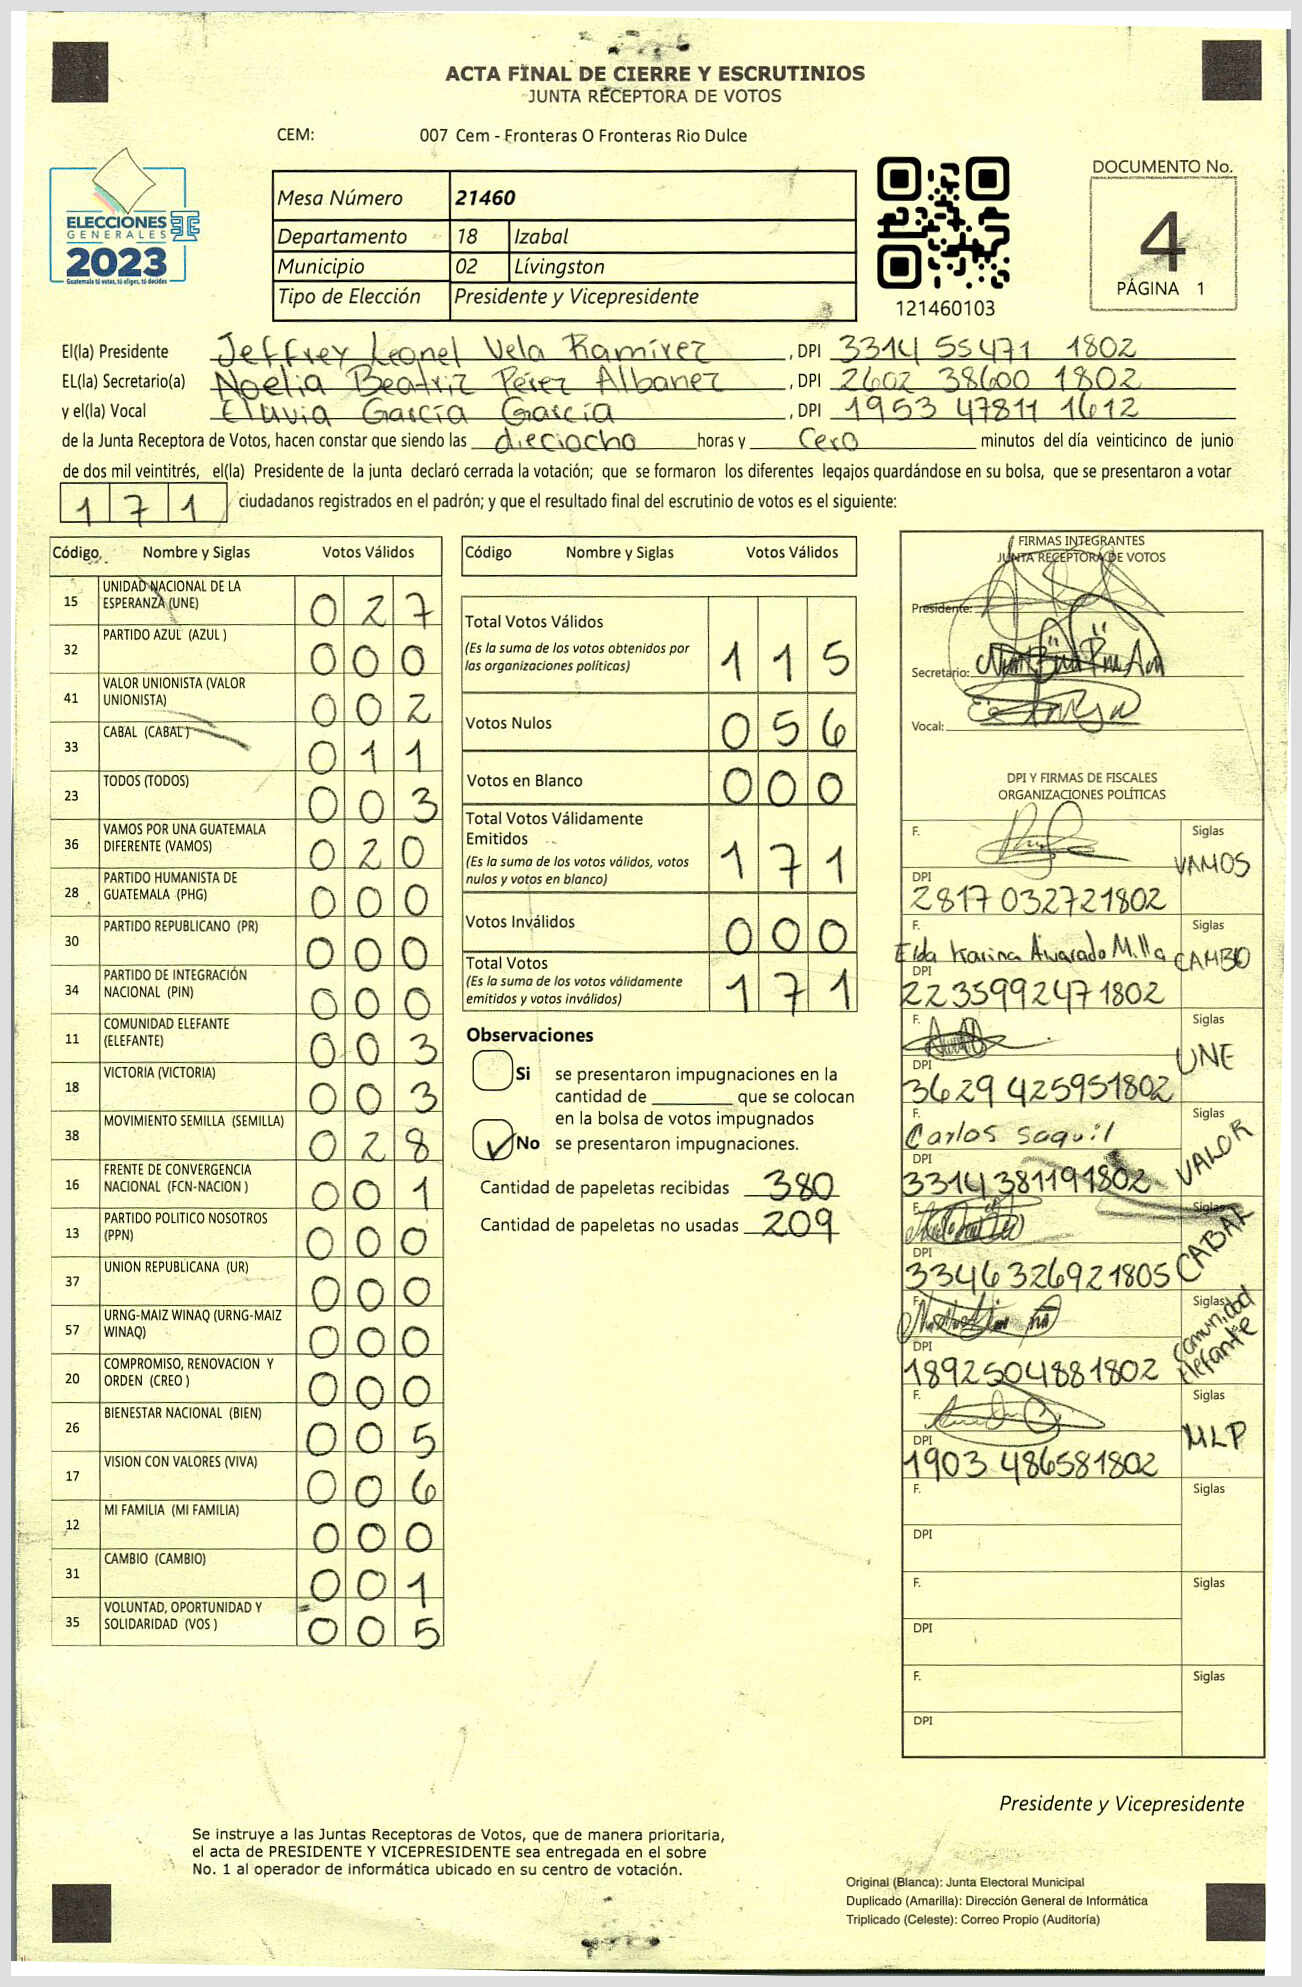 ACTA FINAL DE CIERRE Y ESCRUTINIOS
JUNTA RECEPTORA DE VOTOS
CEM: 007 Cem - Fronteras O Fronteras Rio Dulce
ELECCIONES
GENERALES
2023
Guatemala tú votas, tú eliges, tú decides
Mesa Número 21460
Departamento 18 Izabal
Municipio 02 Lívingston
Tipo de Elección Presidente y Vicepresidente
121460103
DOCUMENTO No.
4
PÁGINA 1
El(la) Presidente Jeffrey Leonel Vela Ramírez , DPI 3314 55471 1802
EL(la) Secretario(a) Noelia Beatriz Pérez Albanez , DPI 2602 38600 1802
y el(la) Vocal Eluvia García García , DPI 1953 47811 1612
de la Junta Receptora de Votos, hacen constar que siendo las dieciocho horas y cero minutos del día veinticinco de junio
de dos mil veintitrés, el(la) Presidente de la junta declaró cerrada la votación; que se formaron los diferentes legajos quardándose en su bolsa, que se presentaron a votar
171 ciudadanos registrados en el padrón; y que el resultado final del escrutinio de votos es el siguiente:
Código Nombre y Siglas Votos Válidos
15 UNIDAD NACIONAL DE LA ESPERANZA (UNE) 027
32 PARTIDO AZUL (AZUL ) 000
41 VALOR UNIONISTA (VALOR UNIONISTA) 002
33 CABAL (CABAL ) 011
23 TODOS (TODOS) 003
36 VAMOS POR UNA GUATEMALA DIFERENTE (VAMOS) 020
28 PARTIDO HUMANISTA DE GUATEMALA (PHG) 000
30 PARTIDO REPUBLICANO (PR) 000
34 PARTIDO DE INTEGRACIÓN NACIONAL (PIN) 000
11 COMUNIDAD ELEFANTE (ELEFANTE) 003
18 VICTORIA (VICTORIA) 003
38 MOVIMIENTO SEMILLA (SEMILLA) 028
16 FRENTE DE CONVERGENCIA NACIONAL (FCN-NACION ) 001
13 PARTIDO POLITICO NOSOTROS (PPN) 000
37 UNION REPUBLICANA (UR) 000
57 URNG-MAIZ WINAQ (URNG-MAIZ WINAQ) 000
20 COMPROMISO, RENOVACION Y ORDEN (CREO ) 000
26 BIENESTAR NACIONAL (BIEN) 005
17 VISION CON VALORES (VIVA) 006
12 MI FAMILIA (MI FAMILIA) 000
31 CAMBIO (CAMBIO) 001
35 VOLUNTAD, OPORTUNIDAD Y SOLIDARIDAD (VOS ) 005
Código Nombre y Siglas Votos Válidos
Total Votos Válidos 115
(Es la suma de los votos obtenidos por
las organizaciones políticas)
Votos Nulos 056
Votos en Blanco 000
Total Votos Válidamente
Emitidos 171
(Es la suma de los votos válidos, votos
nulos y votos en blanco)
Votos Inválidos 000
Total Votos 171
(Es la suma de los votos válidamente
emitidos y votos inválidos)
Observaciones
Si se presentaron impugnaciones en la
cantidad de ________ que se colocan
en la bolsa de votos impugnados
No se presentaron impugnaciones.
Cantidad de papeletas recibidas 380
Cantidad de papeletas no usadas 209
FIRMAS INTEGRANTES
JUNTA RECEPTORA DE VOTOS
Presidente:
Secretario:
Vocal:
DPI Y FIRMAS DE FISCALES
ORGANIZACIONES POLÍTICAS
F. Siglas VAMOS
DPI 2817 032721802
F. Elda Karina Alvarado Milla Siglas CAMBIO
DPI 2235992471802
F. Siglas UNE
DPI 3629 425951802
F. Carlos Saquil Siglas VALOR
DPI 3314 381191802
F. Siglas CABAL
DPI 3346 326921805
F. Siglas Comunidad Elefante
DPI 1892504881802
F. Siglas MLP
DPI 1903 486581802
F. Siglas
DPI
F. Siglas
DPI
F. Siglas
DPI
Presidente y Vicepresidente
Se instruye a las Juntas Receptoras de Votos, que de manera prioritaria,
el acta de PRESIDENTE Y VICEPRESIDENTE sea entregada en el sobre
No. 1 al operador de informática ubicado en su centro de votación.
Original (Blanca): Junta Electoral Municipal
Duplicado (Amarilla): Dirección General de Informática
Triplicado (Celeste): Correo Propio (Auditoría)